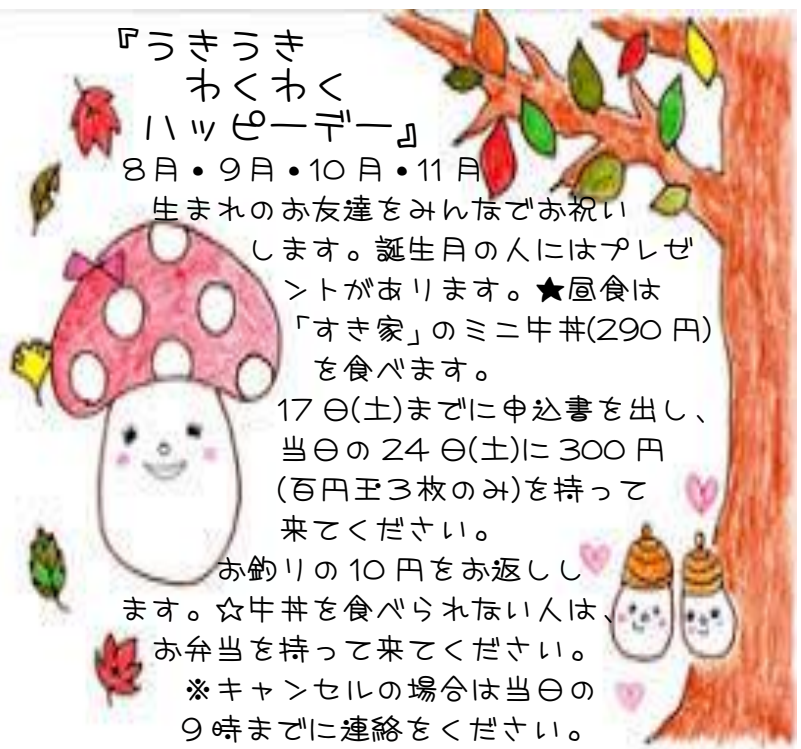 『うきうき
わくわく
ハッピーデー』
8月・9月・10月・11月
生まれのお友達をみんなでお祝い
します。誕生月の人にはプレゼ
ントがあります。★昼食は
「すき家」のミニ牛丼(290円)
を食べます。
17日(土)までに申込書を出し、
当日の24日(土)に300円
(百円玉3枚のみ)を持って
来てください。
お釣りの10円をお返しし
ます。☆牛丼を食べられない人は、
お弁当を持って来てください。
※キャンセルの場合は当日の
9時までに連絡をください。